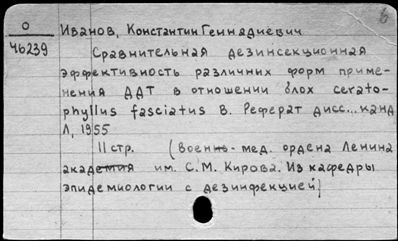 О Иванов, Константин Геннадиевич
46239
Сравнительная дезинсекционная
эффективность различных форм приме-
нения ДДТ в отношении блох cerato-
phyllus fasciatus B. Реферат дисс...канд
Л, 1955
11 стр. (Военн- мед. ордена Ленина
академия им. С.М. Кирова. Из кафедры
эпидемиологии с дезинфекцией)